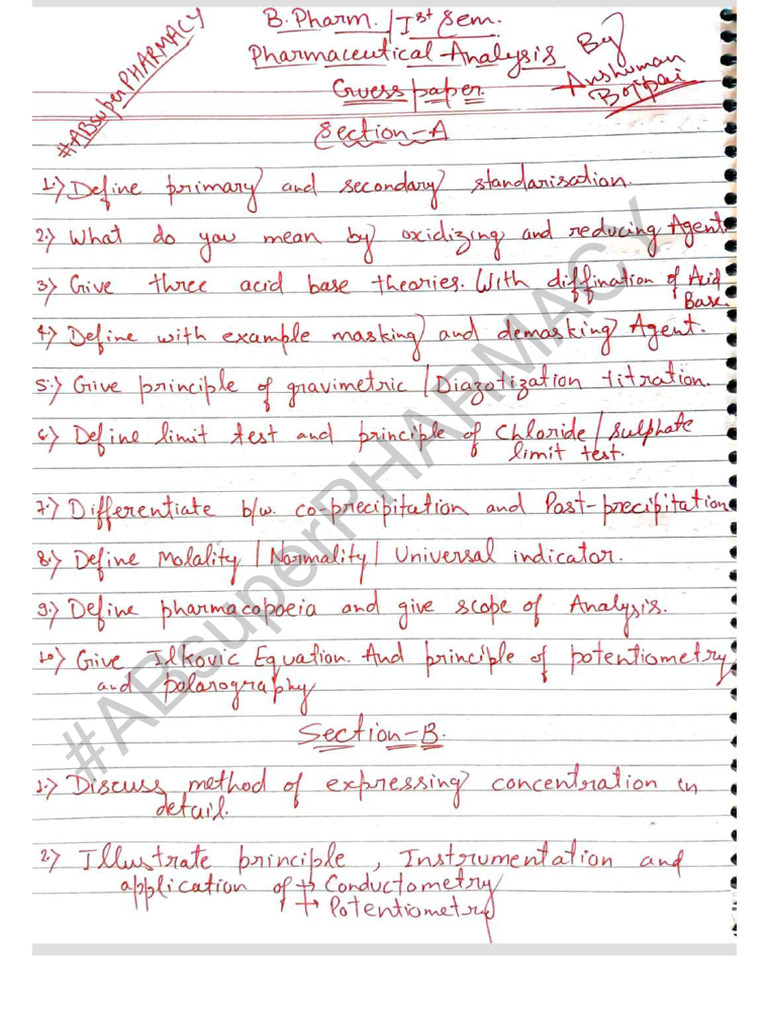 B. Pharm. / Ist Sem.
#ABsuperPHARMACY
Pharmaceutical Analysis
By
Anshuman
Bojpai
Guess paper.
Section-A
1.) Define primary and secondary standarisation.
2.) What do you mean by oxidizing and reducing Agent.
3) Give three acid base theories. With diffination of Acid
Base.
4) Define with example masking and demasking Agent.
5.) Give principle of gravimetric / Diazotization titration.
6) Define limit test and principle of Chloride / sulphate
limit test.
7.) Differentiate b/w. co-precipitation and Post-precipitation
8.) Define Molality / Normality / Universal indicator.
9.) Define pharmacopoeia and give scope of Analysis.
10) Give Ilkovic Equation. And principle of potentiometry
and polarography
Section-B.
1.) Discuss method of expressing concentration in
detail.
2.) Illustrate principle, Instrumentation and
application of → Conductometry
→ Potentiometry
#ABsuperPHARMACY